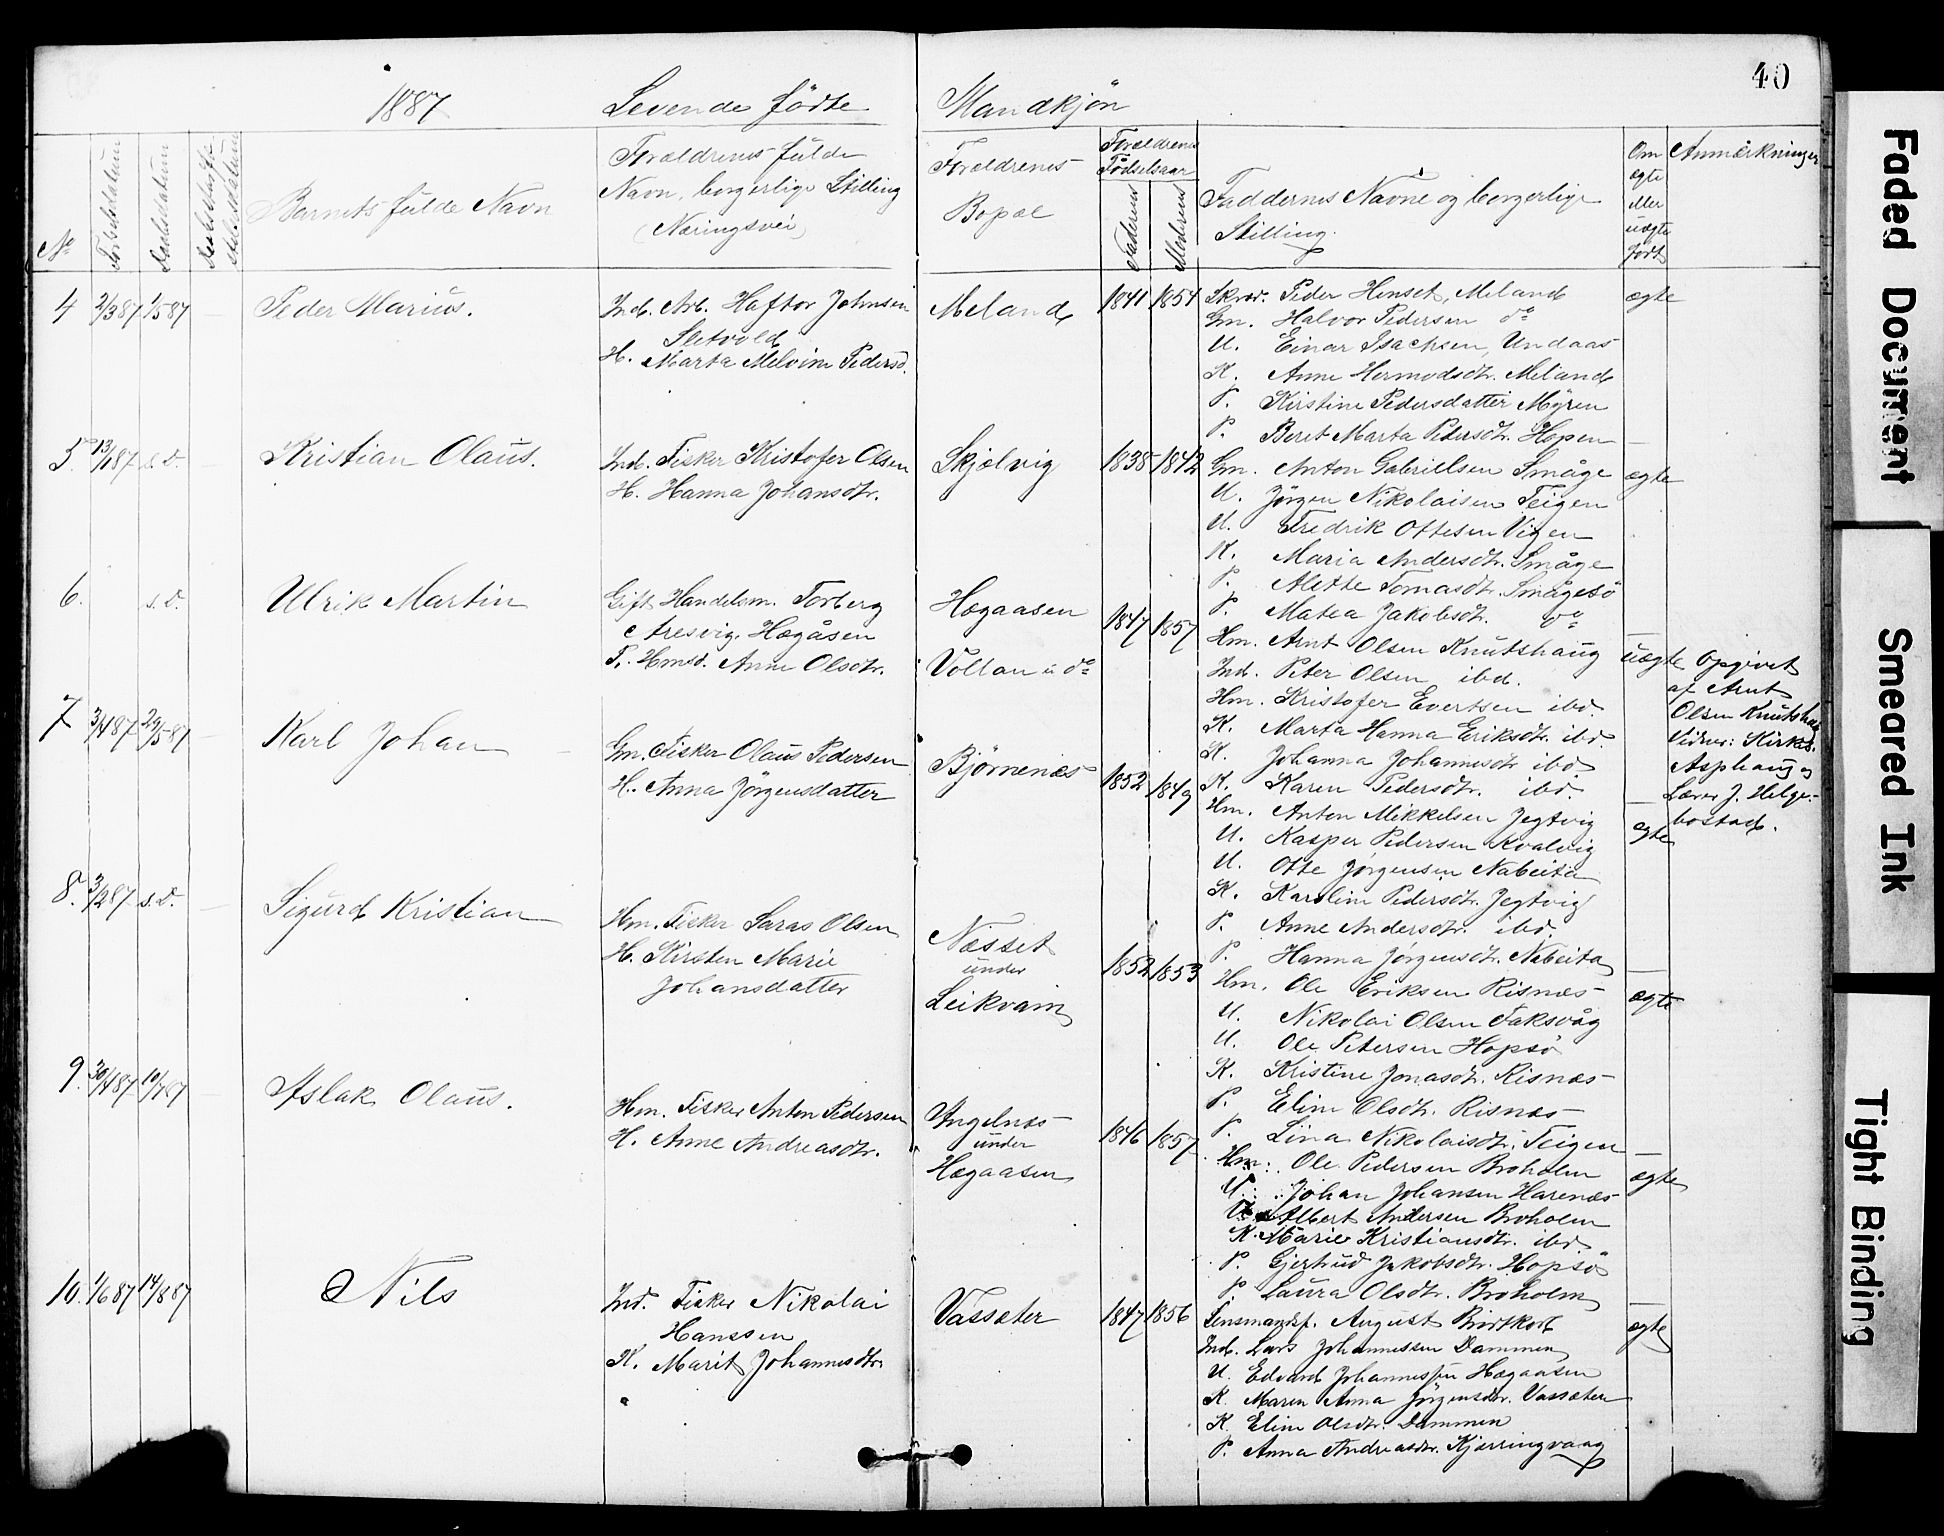 40
1887 Levende födte Mandkjön
No
Fødselsdatum
Daabsdatum
Barnets fulde Navn
Forældrenes fulde
Navn, borgerlige Stilling
(Næringsvei)
Forældrenes
Bopæl
Forældrenes
Fødselsaar
Faderens
Moderens
Faddernes Navne og borgerlige
Stilling.
Om
ægte
eller
uægte
født
Anmærkninger
4 2/3 87 1/5 87 Peder Marius.
Ind. Arb. Haftor Johnsen
Sletvold
H. Marta Melvine Pedersd.
Meland
1841 1854
Skræd. Peder Henset, Meland
Gm. Halvor Pedersen do
U. Einar Isachsen, Undaas
K. Anne Hermodsdtr. Meland
P. Kirstine Pedersdatter Myren
P. Beret Marta Pedersdtr. Hopen
ægte
5. 13/1 87 s.d. Kristian Olaus.
Ind. Fisker Kristofer Olsen
H. Hanna Johansdtr.
Skjølvig
1838 1842
Gm. Anton Gabrielsen Småge
U. Jörgen Nikolaisen Teigen
U. Fredrik Ottesen Vigen
K. Maria Andersdtr. Småge
P. Alette Tomasdtr. Smågesö
P. Matea Jakobsdtr. do
ægte
6. s.d. Ulrik Martin
Gift Handelsm. Torberg
Aresvig, Hægåsen
P. Hmsd. Anne Olsdtr.
Hægaasen
Vollan u. do
1847 1857
Hm. Arnt Olsen Knutshaug
Ind. Peter Olsen ibd.
Hm. Kristofer Evertsen ibd.
K. Marta Hanna Eriksdtr. ibd.
K. Johanna Johannesdtr ibd
K. Karen Pedersdtr. ibd.
uægte
Opgivet
af Arnt
Olsen Knutshaug
Vidner: Kirkes.
Asphaug og
Lærer J. Helge-
bostad.
7 3/4 87 29/5 87 Karl Johan
Gm. Fisker Olaus Pedersen
H. Anna Jörgensdatter
Björnenæs
1852 1849
Hm. Anton Mikkelsen Jegtvig
U. Kasper Pedersen Kvalvig
U. Otte Jørgensen Nabeita
K. Karoline Pedersdtr. Jegtvig
P. Anne Andersdtr. ibd.
P. Hanna Jörgensdtr. Nabeita
ægte
8. 3/2 87 s.d. Sigurd Kristian
Hm. Fisker Saras Olsen
H. Kirsten Marie
Johansdatter
Næsset
under
Leikvam
1852 1853
Hm. Ole Eriksen Risnæs
U. Nikolai Olsen Faksvåg
U. Ole Petersen Hopsö
K. Kristine Jonasdtr. Risnæs
P. Eline Olsdtr. Risnæs
P. Lina Nikolaisdtr. Teigen
ægte
9. 30/4 87 10/7 87 Aslak Olaus.
Hm. Fisker Anton Pedersen
H. Anne Andreasdtr.
Angelnæs
under
Hægaasen
1846 1857
Hm. Ole Pedersen Broholm
U. Johan Johansen Harenæs
U. Albert Andersen Broholm
K. Marie Kristiansdtr. ibd.
P. Gjertrud Jakobsdtr. Hopsö
P. Laura Olsdtr. Broholm
ægte
10. 1/6 87 14/8 87 Nils
Ind. Fisker Nikolai
Hanssen
K. Marit Johannesdtr.
Vassæter
1847 1856
Lensmandsf. August
Ind. Lars Johannessen Dammen
U. Edvard Johannessen Hægaasen
K. Maren Anna Jörgensdtr. Vassæter
K. Eline Olsdtr. Dammen
P. Anna Andreasdtr. Kjærringvaag
ægte
Faded Document
Smeared Ink
Tight Binding